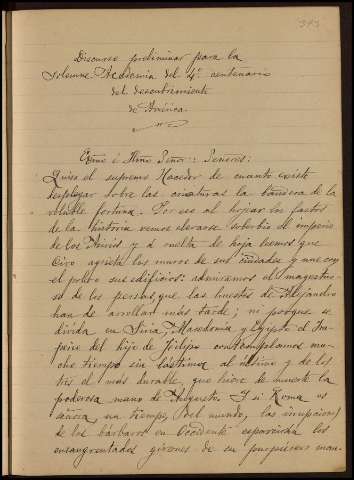 393
Discurso preliminar para la
solemne Academia del 4º centenario
del descubrimiento
de América.
Exmo é Illmo Señor: Señores:
Quiso el supremo Hacedor de cuanto existe
desplegar sobre las criaturas la bandera de la
voluble fortuna. Por eso al hojear los fastos
de la historia vemos elevarse soberbio el imperio
de los Asirios y á vuelta de hoja leemos que
Ciro agrieta los muros de sus ciudades y une con
el polvo sus edificios: admiramos el magestuo-
so de los persas, que las huestes de Alejandro
han de arrollar mas tarde; ni porque se
divida en Siria, Macedonia y Egipto el Im-
perio del hijo de Filipo contemplamos mu-
cho tiempo sin lástima al último y de los
tres el mas durable, que hiere de muerte la
poderosa mano de Augusto. Y si Roma es
señora, un tiempo, del mundo, las irrupciones
de los bárbaros en Occidente esparcirán los
ensangrentados girones de su purpúreo man-